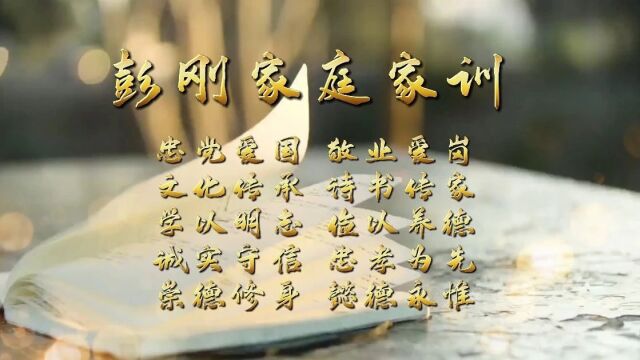 彭刚家庭家训
忠党爱国 敬业爱岗
文化传承 诗书传家
学以明志 位以养德
诚实守信 忠孝为先
崇德修身 懿德永惟